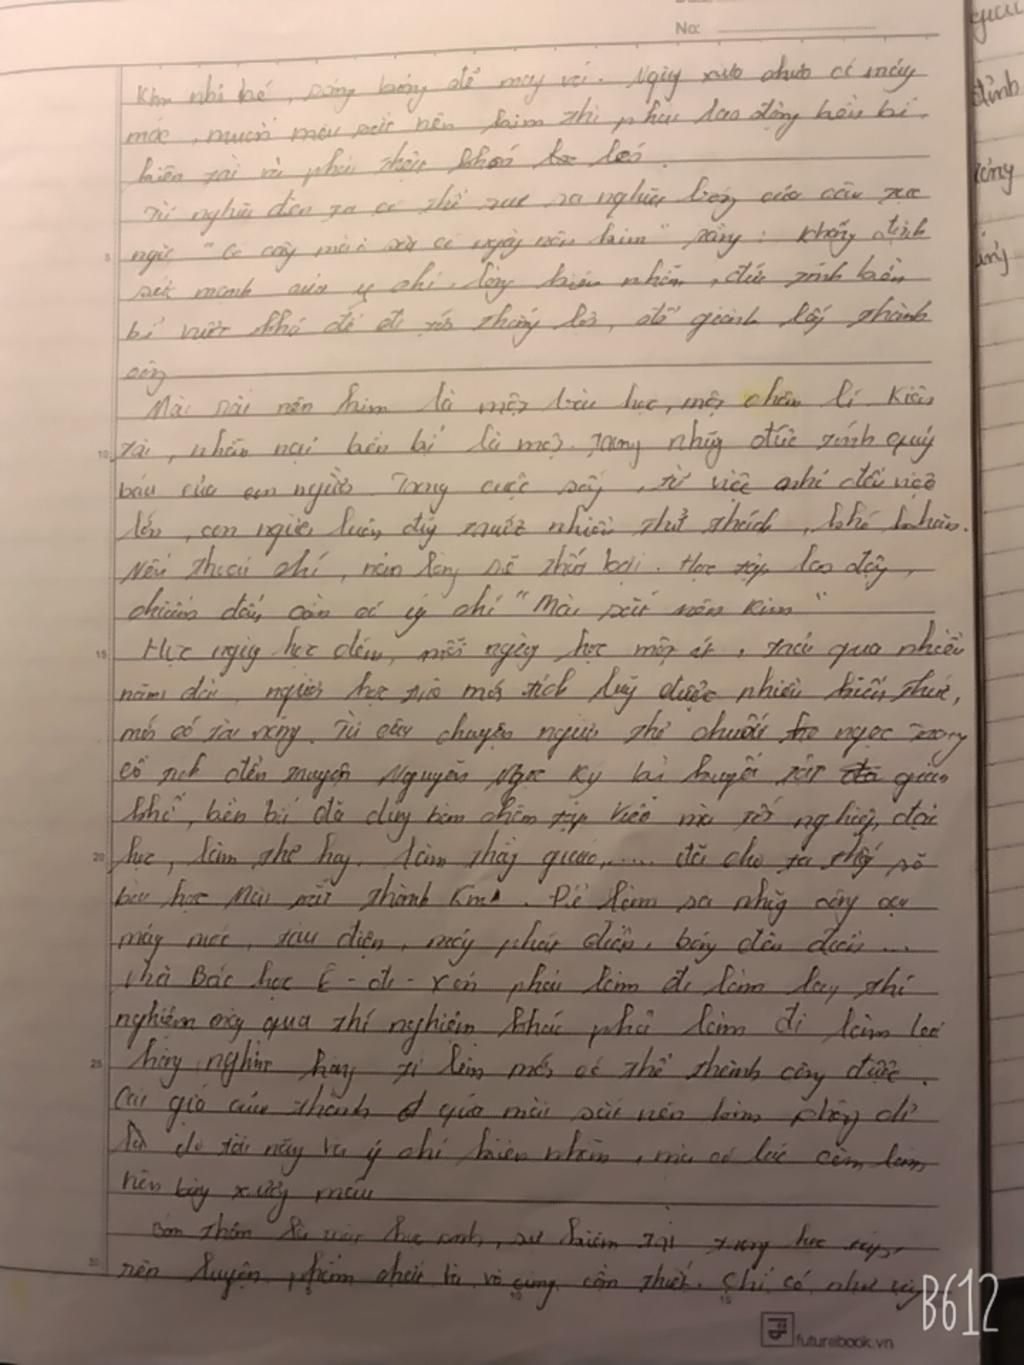 No:
Kim nhỏ bé, sáng bóng để may vá. Ngày xưa chưa có máy
móc, muốn mài sắt nên kim thì phải lao động bền bỉ,
kiên trì và phải thật khéo léo.
Từ nghĩa đen ta có thể suy ra nghĩa bóng của câu tục
ngữ "Có công mài sắt có ngày nên kim" rằng: khẳng định
sức mạnh của ý chí, lòng kiên nhẫn, đức tính bền
bỉ vượt khó để đi tới thắng lợi, để giành lấy thành
công
Mài sắt nên kim là một bài học, một chân lí. Kiên
trì, nhẫn nại bền bỉ là một trong những đức tính quý
báu của con người. Trong cuộc sống, từ việc nhỏ đến việc
lớn, con người luôn đứng trước nhiều thử thách, khó khăn.
Nếu thoái chí, nản lòng sẽ thất bại. Học tập lao động,
chiến đấu, cần có ý chí "Mài sắt nên kim"
Học ngày học đêm, mỗi ngày học một ít, trải qua nhiều
năm dài, người học trò mới tích luỹ được nhiều kiến thức,
mới có tài năng. Từ câu chuyện người thợ chuốt ngọc trong
cổ tích đến truyện Nguyễn Ngọc Ký bị huyết tật gian
khổ, bền bỉ đã dùng bàn chân tập viết mà tốt nghiệp đại
học, làm thơ hay, làm thầy giáo,..... đã cho ta thấy rõ
bài học Mài sắt thành Kim. Để làm ra những công cụ
máy móc, tàu điện, máy phát điện, bóng đèn điện ...
nhà Bác học Ê - đi - xơn phải làm đi làm lại thí
nghiệm này qua thí nghiệm khác phải làm đi làm lại
hàng nghìn hàng tỉ lần mới có thể thành công được.
Cái giá của thành quả mài sắt nên kim không chỉ
là do tài năng và ý chí kiên nhẫn, mà có lúc còn làm
nên bằng xương máu
Bản thân là một học sinh, sự kiên trì trong học tập,
rèn luyện phẩm chất là vô cùng cần thiết. Chỉ có như vậy
5
10
15
20
25
30
B612
futurebook.vn